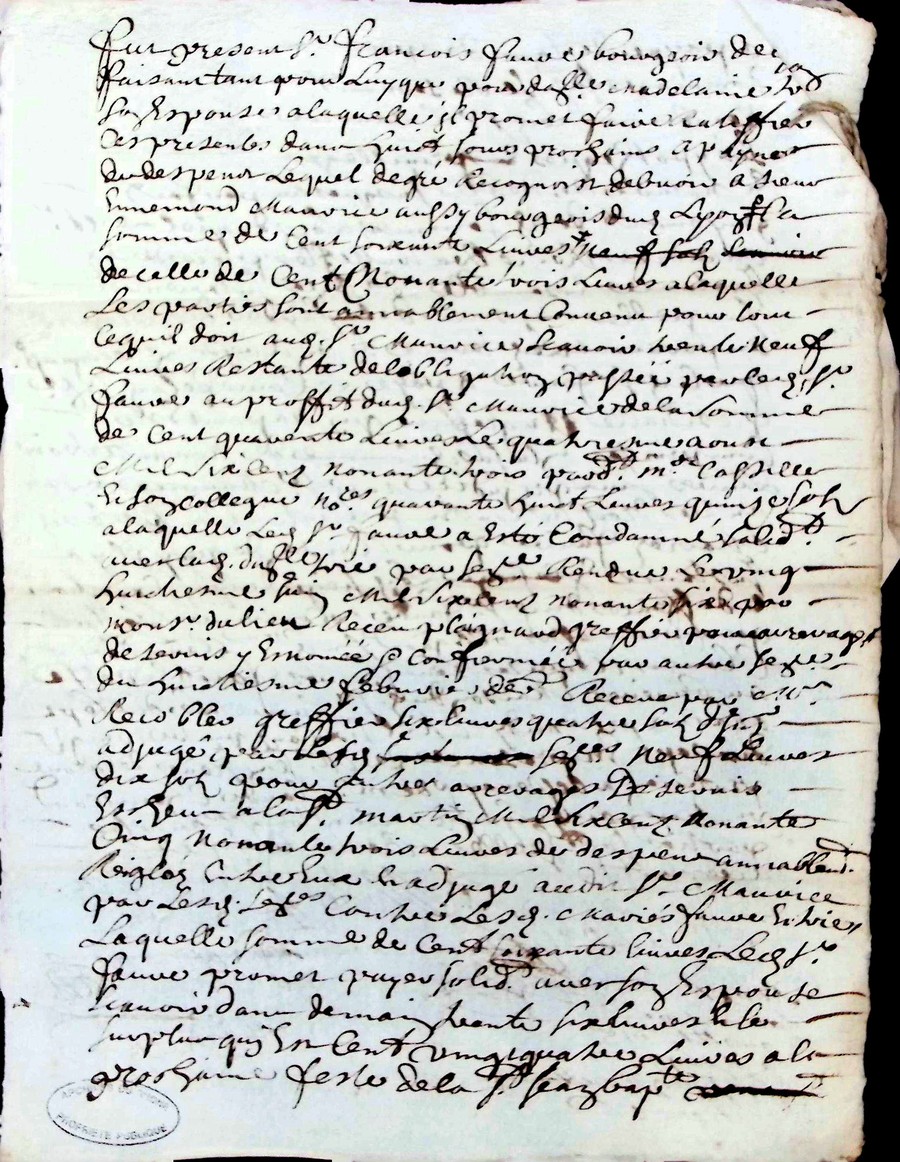 fut present Sr. francois fauve bourgeois de
faisant tant pour luy que pour dalle. Madelaine
son Espouse a laquelle il promet faire ratiffier
Ces presentes dans huict jours prochains a peyne
du despens Lequel de gré Recognoist debvoir a sieur
Ennemond Mauvice aussy bourgeois dud. Lyon la
somme de Cent soixante Livres neuf solz
de celle de Cent Nonante trois Livres a laquelle
Les parties sont amiablement Convenu pour tout
Ce quil doit aud. Sr. Mauvice scavoir trente neuf
Livres Restante de lobligation passée par led. Sr.
fauve au proffit dud. Sr. Mauvice de la somme
de Cent quarente Livres Le quatriesme aoust
Mil six cent nonante trois par Me Castille
Et son collegue nores. quarante huict Livres quinze solz
a laquelle Led. Sr. fauve a Esté Condamné solidt.
avec lad. dalle Vrié par sence Rendue Le vingt
huictiesme Juin Mil six cent nonante six par
monsr. du lieu Receu plaignard greffier pour arrerages
de servis y Enoncée & Confirmée par autre sence
du huictiesme febvrier der Receue par Me
Recoblev greffier six livres quatre solz
adjugé par lesd. sences neuf Livres
dix solz pour autres arrerages De servis
Escheus a la St. martin Mil six cent Nonante
Cinq Nonante trois Livres de despens amiablemt.
Reiglés Entre Eux Et adjugé audit Sr. Mauvice
par Lesd. sences Contre Lesd. Mariés fauve Et vrié
Laquelle somme de Cent soixante livres Led. Sr.
fauve promet payer solidt. avec son Espouse
scavoir dans demain trente six livres Et le
surplus quy Est Cent vingt quatre Livres a la
prochaine feste de la St. Jean bapte
PROPRIETE PUBLIQUE